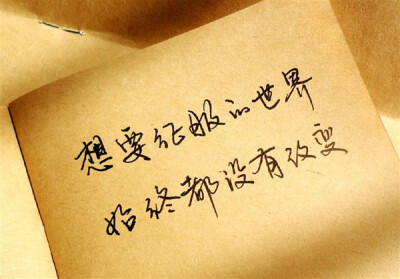 想要征服的世界
始终都没有改变